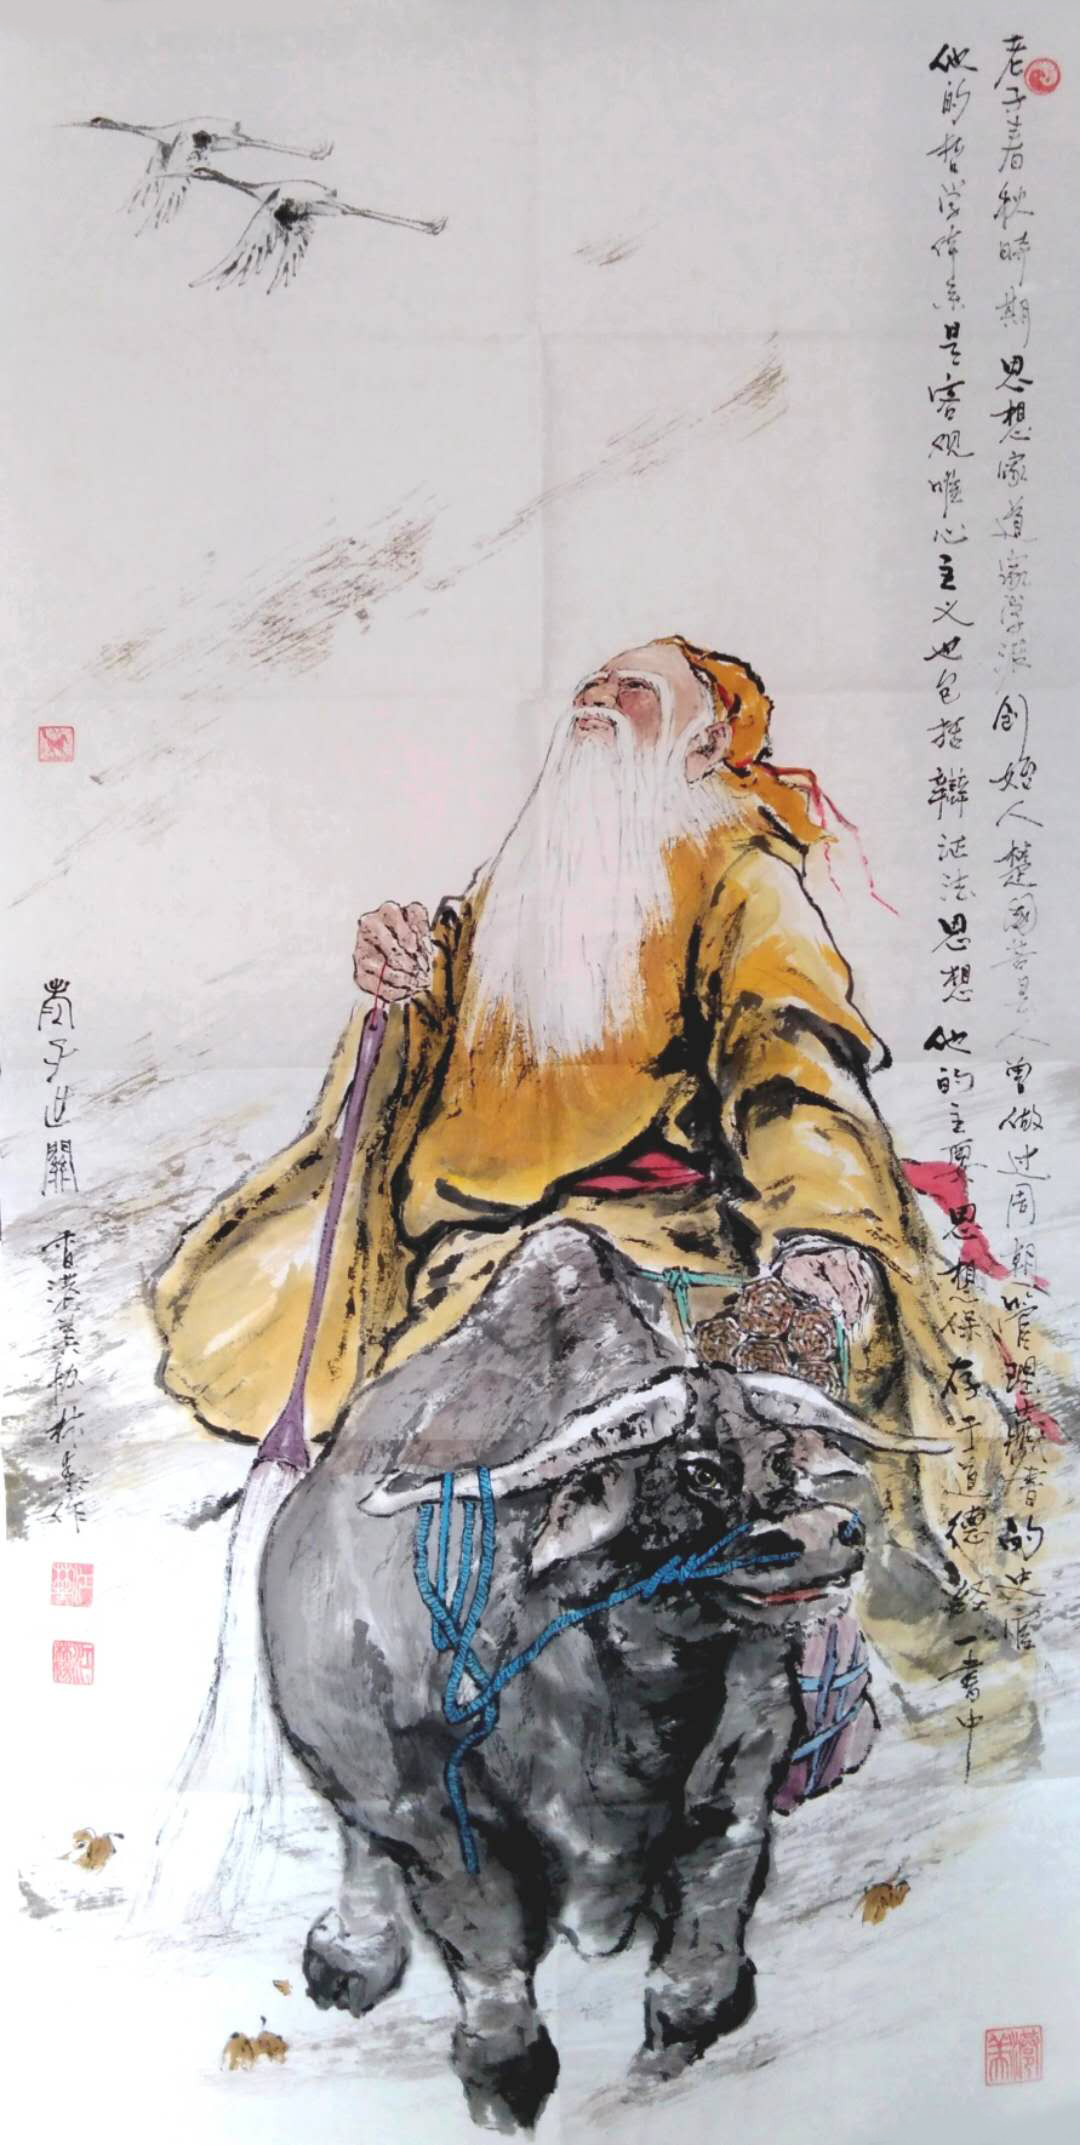 老子春秋時期思想家道家学派创始人楚國苦县人曾做过周朝管理藏書的史官
他的哲学体系是客观唯心主义也包括辯证法思想他的主要思想保存于道德经一書中
老子出關
香港美协林作